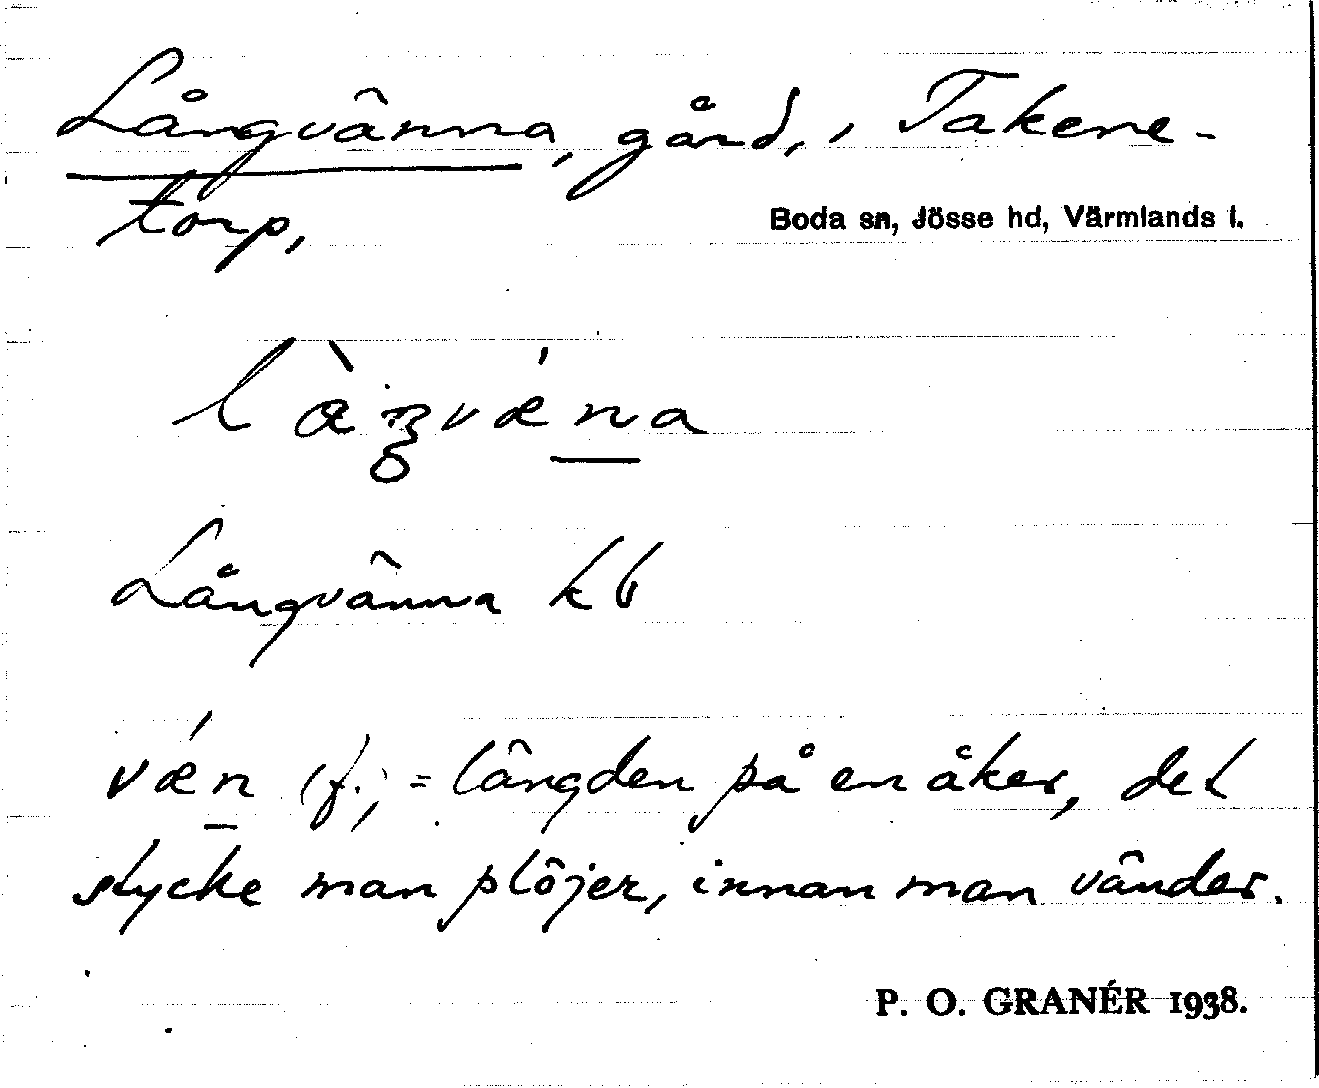 Långvänna, gård, i Takene-
torp,
Boda sn, Jösse hd, Värmlands l.
Långvänna kb
væn (f.) = längden på en åker, det
stycke man plöjer, innan man vänder.
P. O. GRANÉR 1938.